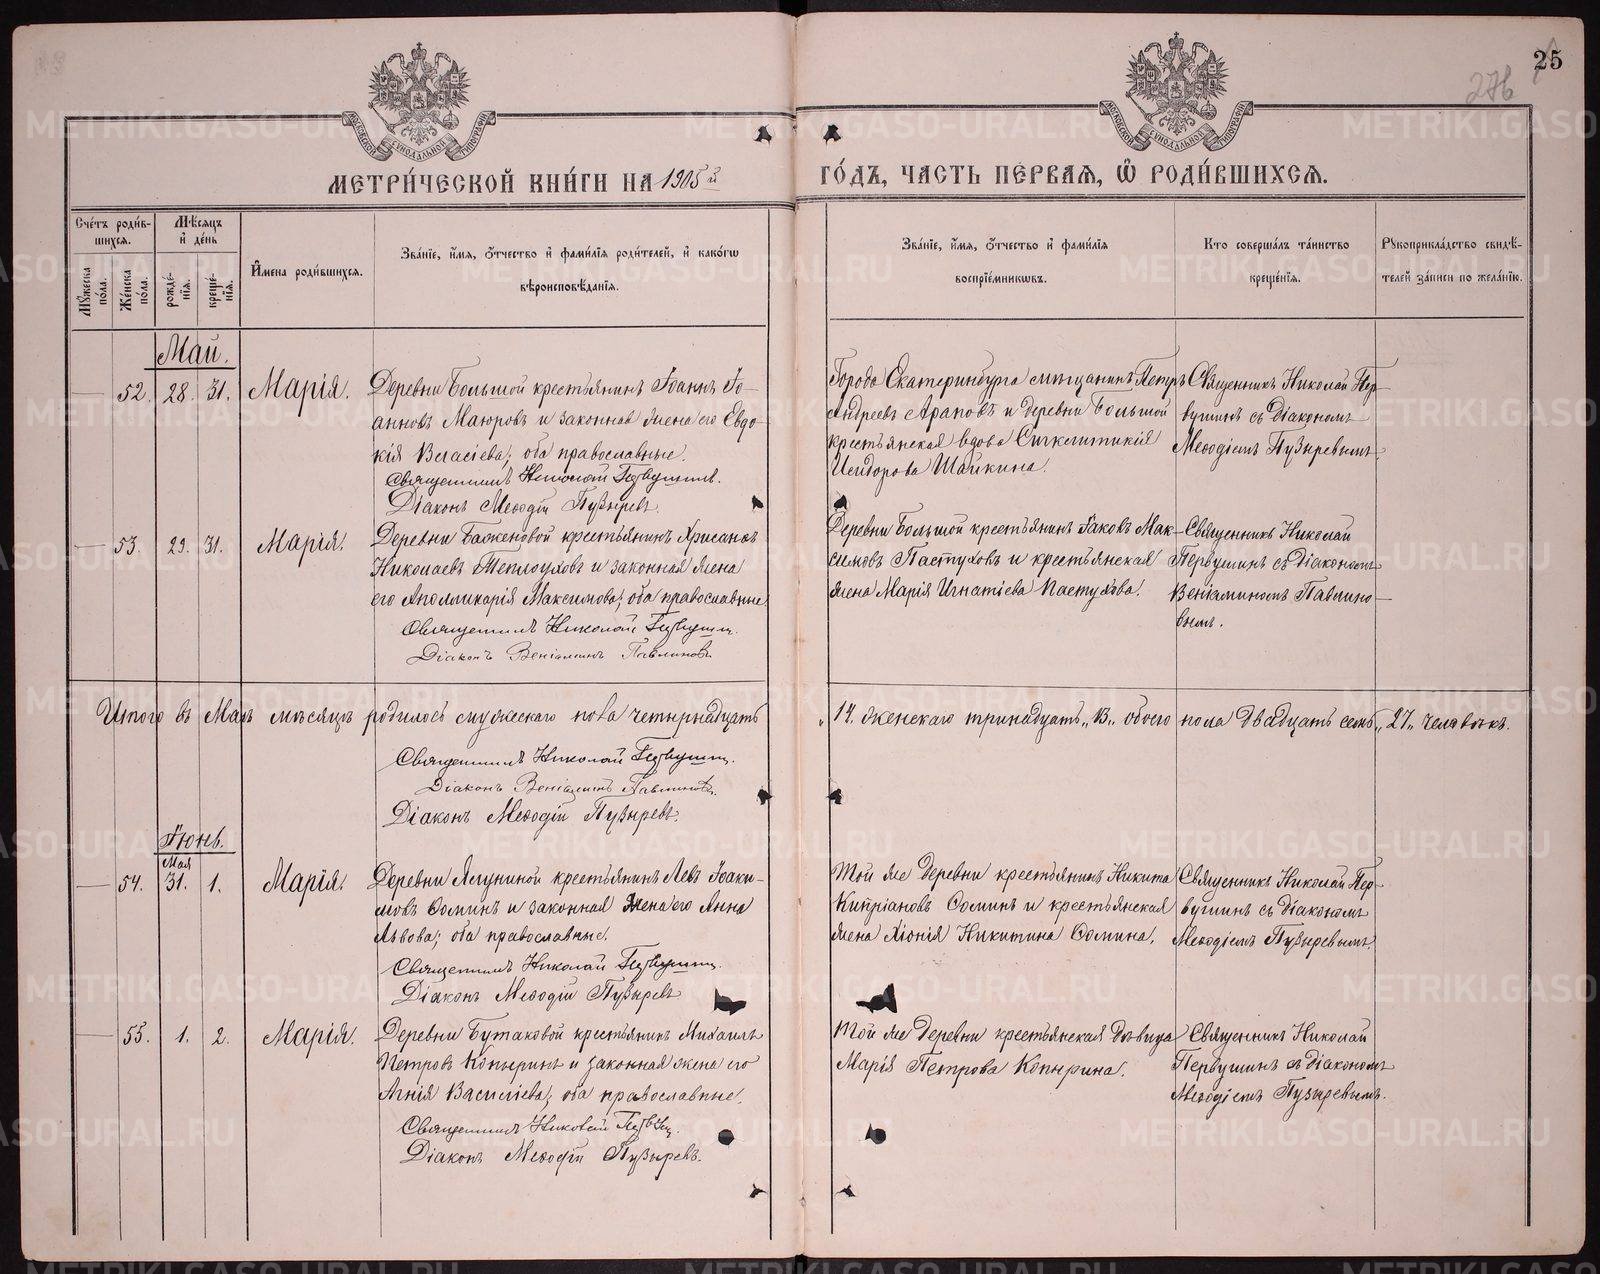 25
27б
МОСКОВСКОЙ СѴНОДАЛЬНОЙ ТИПОГРАФІИ
МОСКОВСКОЙ СѴНОДАЛЬНОЙ ТИПОГРАФІИ
МЕТРИ́ЧЕСКОЙ КНИ́ГИ НА 1905й ГО́ДЪ, ЧАСТЬ ПЕ́РВАЯ, Ѽ РОДИ́ВШИХСЯ.
Сче́тъ роди́вшихся.
Мꙋ́жеска по́ла.
Же́нска по́ла.
Мѣ́сяцъ и҆ де́нь
рожде́нїя.
креще́нїя.
И҆мена̀ роди́вшихся.
Зва́нїе, и҆́мя, ѻ҆́тчество и҆ фами́лїя роди́телей, и҆ како́гѡ
вѣроисповѣ́данїя.
Зва́нїе, и҆́мя, ѻ҆́тчество и҆ фами́лїя
воспрїе́мникѡвъ.
Кто̀ соверша́лъ та́инство
креще́нїя.
Рꙋкоприкла́дство свидѣ́телей за́писи по жела́нїю.
Май.
— 52. 28. 31. Марія.
Деревни Большой крестьянинъ Іоаннъ Іо-
анновъ Маюровъ и законная жена его Евдо-
кія Власіева; оба православные.
Священникъ Николай Первушинъ.
Діаконъ Меѳодій Пузыревъ.
Города Екатеринбурга мѣщанинъ Петръ
Андреевъ Араповъ и деревни Большой
крестьянская вдова Сигклитикія
Исидорова Шайкина.
Священникъ Николай Пер-
вушинъ съ діакономъ
Меѳодіемъ Пузыревымъ.
— 53. 29. 31. Марія.
Деревни Баженовой крестьянинъ Хрисанѳъ
Николаевъ Теплоуховъ и законная жена
его Аполлинарія Максимова; оба православные
Священникъ Николай Первушин.
Діаконъ Веніаминъ Павлиновъ
Деревни Большой крестьянинъ Іаковъ Мак-
симовъ Пастуховъ и крестьянская
жена Марія Игнатіева Пастухова.
Священникъ Николай
Первушинъ съ діакономъ
Веніаминомъ Павлино-
вымъ.
Итого въ Маѣ мѣсяцѣ родилось мужескаго пола четырнадцать „14. женскаго тринадцать „13„ обоего пола двадцать семь „27„ человѣкъ.
Священникъ Николай Первушин.
Діаконъ Веніаминъ Павлиновъ.
Діаконъ Меѳодій Пузыревъ.
Іюнь.
Мая
— 54. 31. 1. Марія.
Деревни Ялуниной крестьянинъ Левъ Іоаки-
мовъ Соминъ и законная жена его Анна
Львова; оба православные.
Священникъ Николай Первушин.
Діаконъ Меѳодій Пузыревъ
Той же деревни крестьянинъ Никита
Кипріановъ Соминъ и крестьянская
жена Хіонія Никитина Сомина.
Священникъ Николай Пер-
вушинъ съ діакономъ
Меѳодіемъ Пузыревымъ.
— 55. 1. 2. Марія.
Деревни Бутаковой крестьянинъ Михаилъ
Петровъ Копыринъ и законная жена его
Агнія Василіева; оба православные.
Священникъ Николай
Діаконъ Меѳодій Пузыревъ.
Той же деревни крестьянская дѣвица
Марія Петрова Копырина.
Священникъ Николай
Первушинъ съ діакономъ
Меѳодіемъ Пузыревымъ.
METRIKI.GASO-URAL.RU